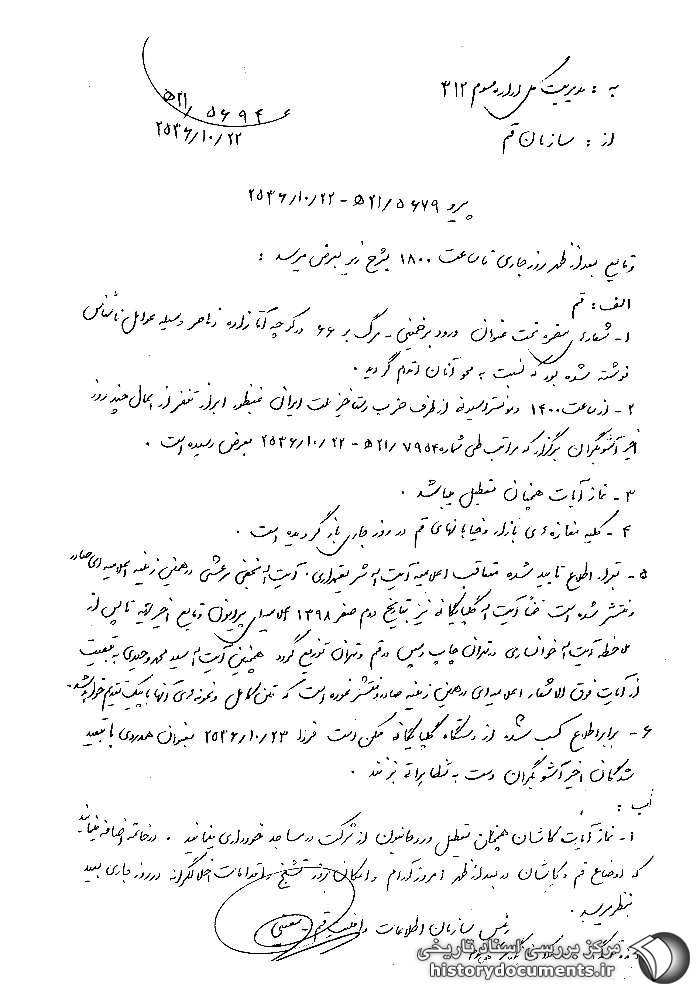 به : مدیریت کل اداره سوم ۳۱۲
از : سازمان قم
۵۲۱/۵۶۹۴
۲۵۳۶/۱۰/۲۲
پیرو ۵۶۷۹/۵۲۱ - ۲۵۳۶/۱۰/۲۲
وقایع بعد از ظهر روز جاری تا ساعت ۱۸۰۰ بشرح زیر بعرض میرسد :
الف : قم
۱- شعاری مضره تحت عنوان درود بر خمینی - مرگ بر ۶۶ در کوچه آقازاده وسیله عوامل ناشناس
نوشته شده بود که نسبت به محو آنان اقدام گردید .
۲- از ساعت ۱۴۰۰ از طرف حزب رستاخیز ملت ایران بمنظور ابراز تنفر از اعمال چند روز
اخیر آشوبگران برگزار که مراتب طی شماره ۷۹۵۴/۵۲۱ - ۲۵۳۶/۱۰/۲۲ بعرض رسیده است .
۳- نماز آیات همچنان تعطیل میباشد .
۴- کلیه مغازه های بازار و خیابانهای قم در روز جاری باز گردیده است .
۵- برابر اطلاع تایید شده متعاقب اعلامیه آیت اله شریعتمداری . آیت اله نجفی مرعشی در همین زمینه اعلامیه ای صادر
و منتشر شده است ضمناً آیت اله گلپایگانی نیز بتاریخ دوم صفر ۱۳۹۸ اعلامیه ای پیرامون وقایع اخیر تهیه تا پس از
ملاحظه آیت اله خوانساری در تهران چاپ و سپس در قم و تهران توزیع گردد همچنین آیت اله سید محمد وحیدی به تبعیت
از آیات فوق الاشعار اعلامیه ای در همین زمینه صادر و منتشر نموده است که متن کامل و نمونه ای آنها با پیک تقدیم خواهد شد .
۶- برابر اطلاع کسب شده از دستگاه گلپایگانی ممکن است فردا ۲۵۳۶/۱۰/۲۳ بعنوان همدردی با تبعید
شدگان اخیر آشوبگران دست به تظاهراتی بزنند .
ب :
۱- نماز آیات کاشان همچنان تعطیل و روحانیون از شرکت در مساجد خودداری مینمایند . در خاتمه اضافه مینماید
که اوضاع قم و کاشان در بعد از ظهر امروز آرام و امکان بروز تشنج و اقدامات اخلالگرانه در روز جاری بعید
بنظر میرسد .
رئیس سازمان اطلاعات و امنیت قم - معینی
مرکز بررسی اسناد تاریخی
historydocuments.ir